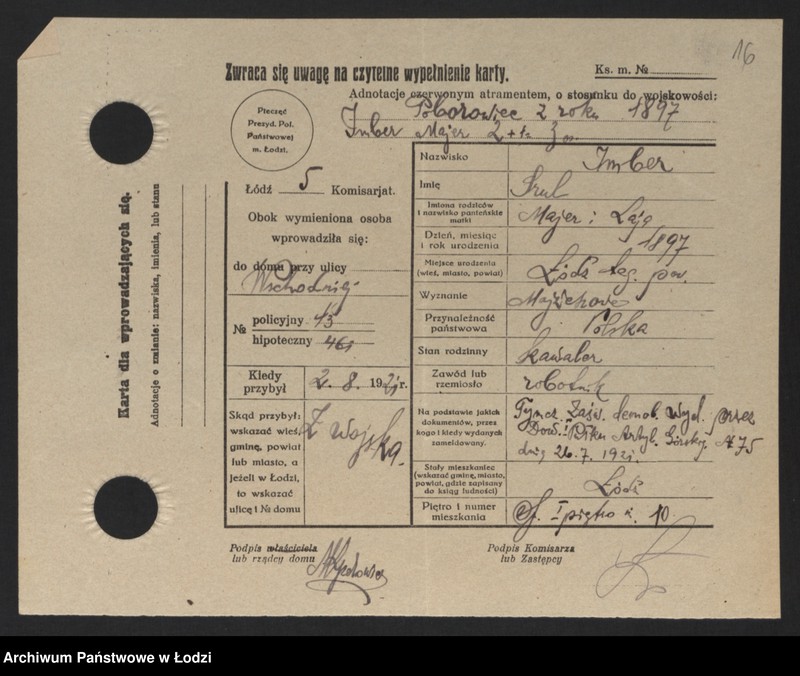 16
Zwraca się uwagę na czytelne wypełnienie karty.
Ks. m. №
Adnotacje czerwonym atramentem, o stosunku do wojskowości:
Poborowiec z roku 1897
Imber Majer
Pieczęć
Prezyd. Pol.
Państwowej
m. Łodzi.
Łódź 5 Komisarjat.
Obok wymieniona osoba
wprowadziła się:
do domu przy ulicy
Wschodniej
№ policyjny 45
hipoteczny 461
Kiedy przybył 2. 8. 1921 r.
Skąd przybył:
wskazać wieś,
gminę, powiat
lub miasto, a
jeżeli w Łodzi,
to wskazać
ulicę i № domu
Z wojska.
Nazwisko Imber
Imię Srul
Imiona rodziców
i nazwisko panieńskie
matki
Majer i Łaja
Dzień, miesiąc
i rok urodzenia
1897
Miejsce urodzenia
(wieś, miasto, powiat)
Łódź pow.
Wyznanie Mojżeszowe
Przynależność
państwowa
Polska
Stan rodzinny kawaler
Zawód lub
rzemiosło
robotnik
Na podstawie jakich
dokumentów, przez
kogo i kiedy wydanych
zameldowany.
Tymcz. Zaśw. demob. Wyd. przez
Dow. I Pułku Artyl. Górskiej № 75
dnia 26. 7. 1921.
Stały mieszkaniec
(wskazać gminę, miasto,
powiat, gdzie zapisany
do ksiąg ludności)
Łódź
Piętro i numer
mieszkania
I piętro 10
Podpis właściciela
lub rządcy domu
Podpis Komisarza
lub Zastępcy
Karta dla wprowadzających się.
Adnotacje o zmianie: nazwiska, imienia, lub stanu
Archiwum Państwowe w Łodzi